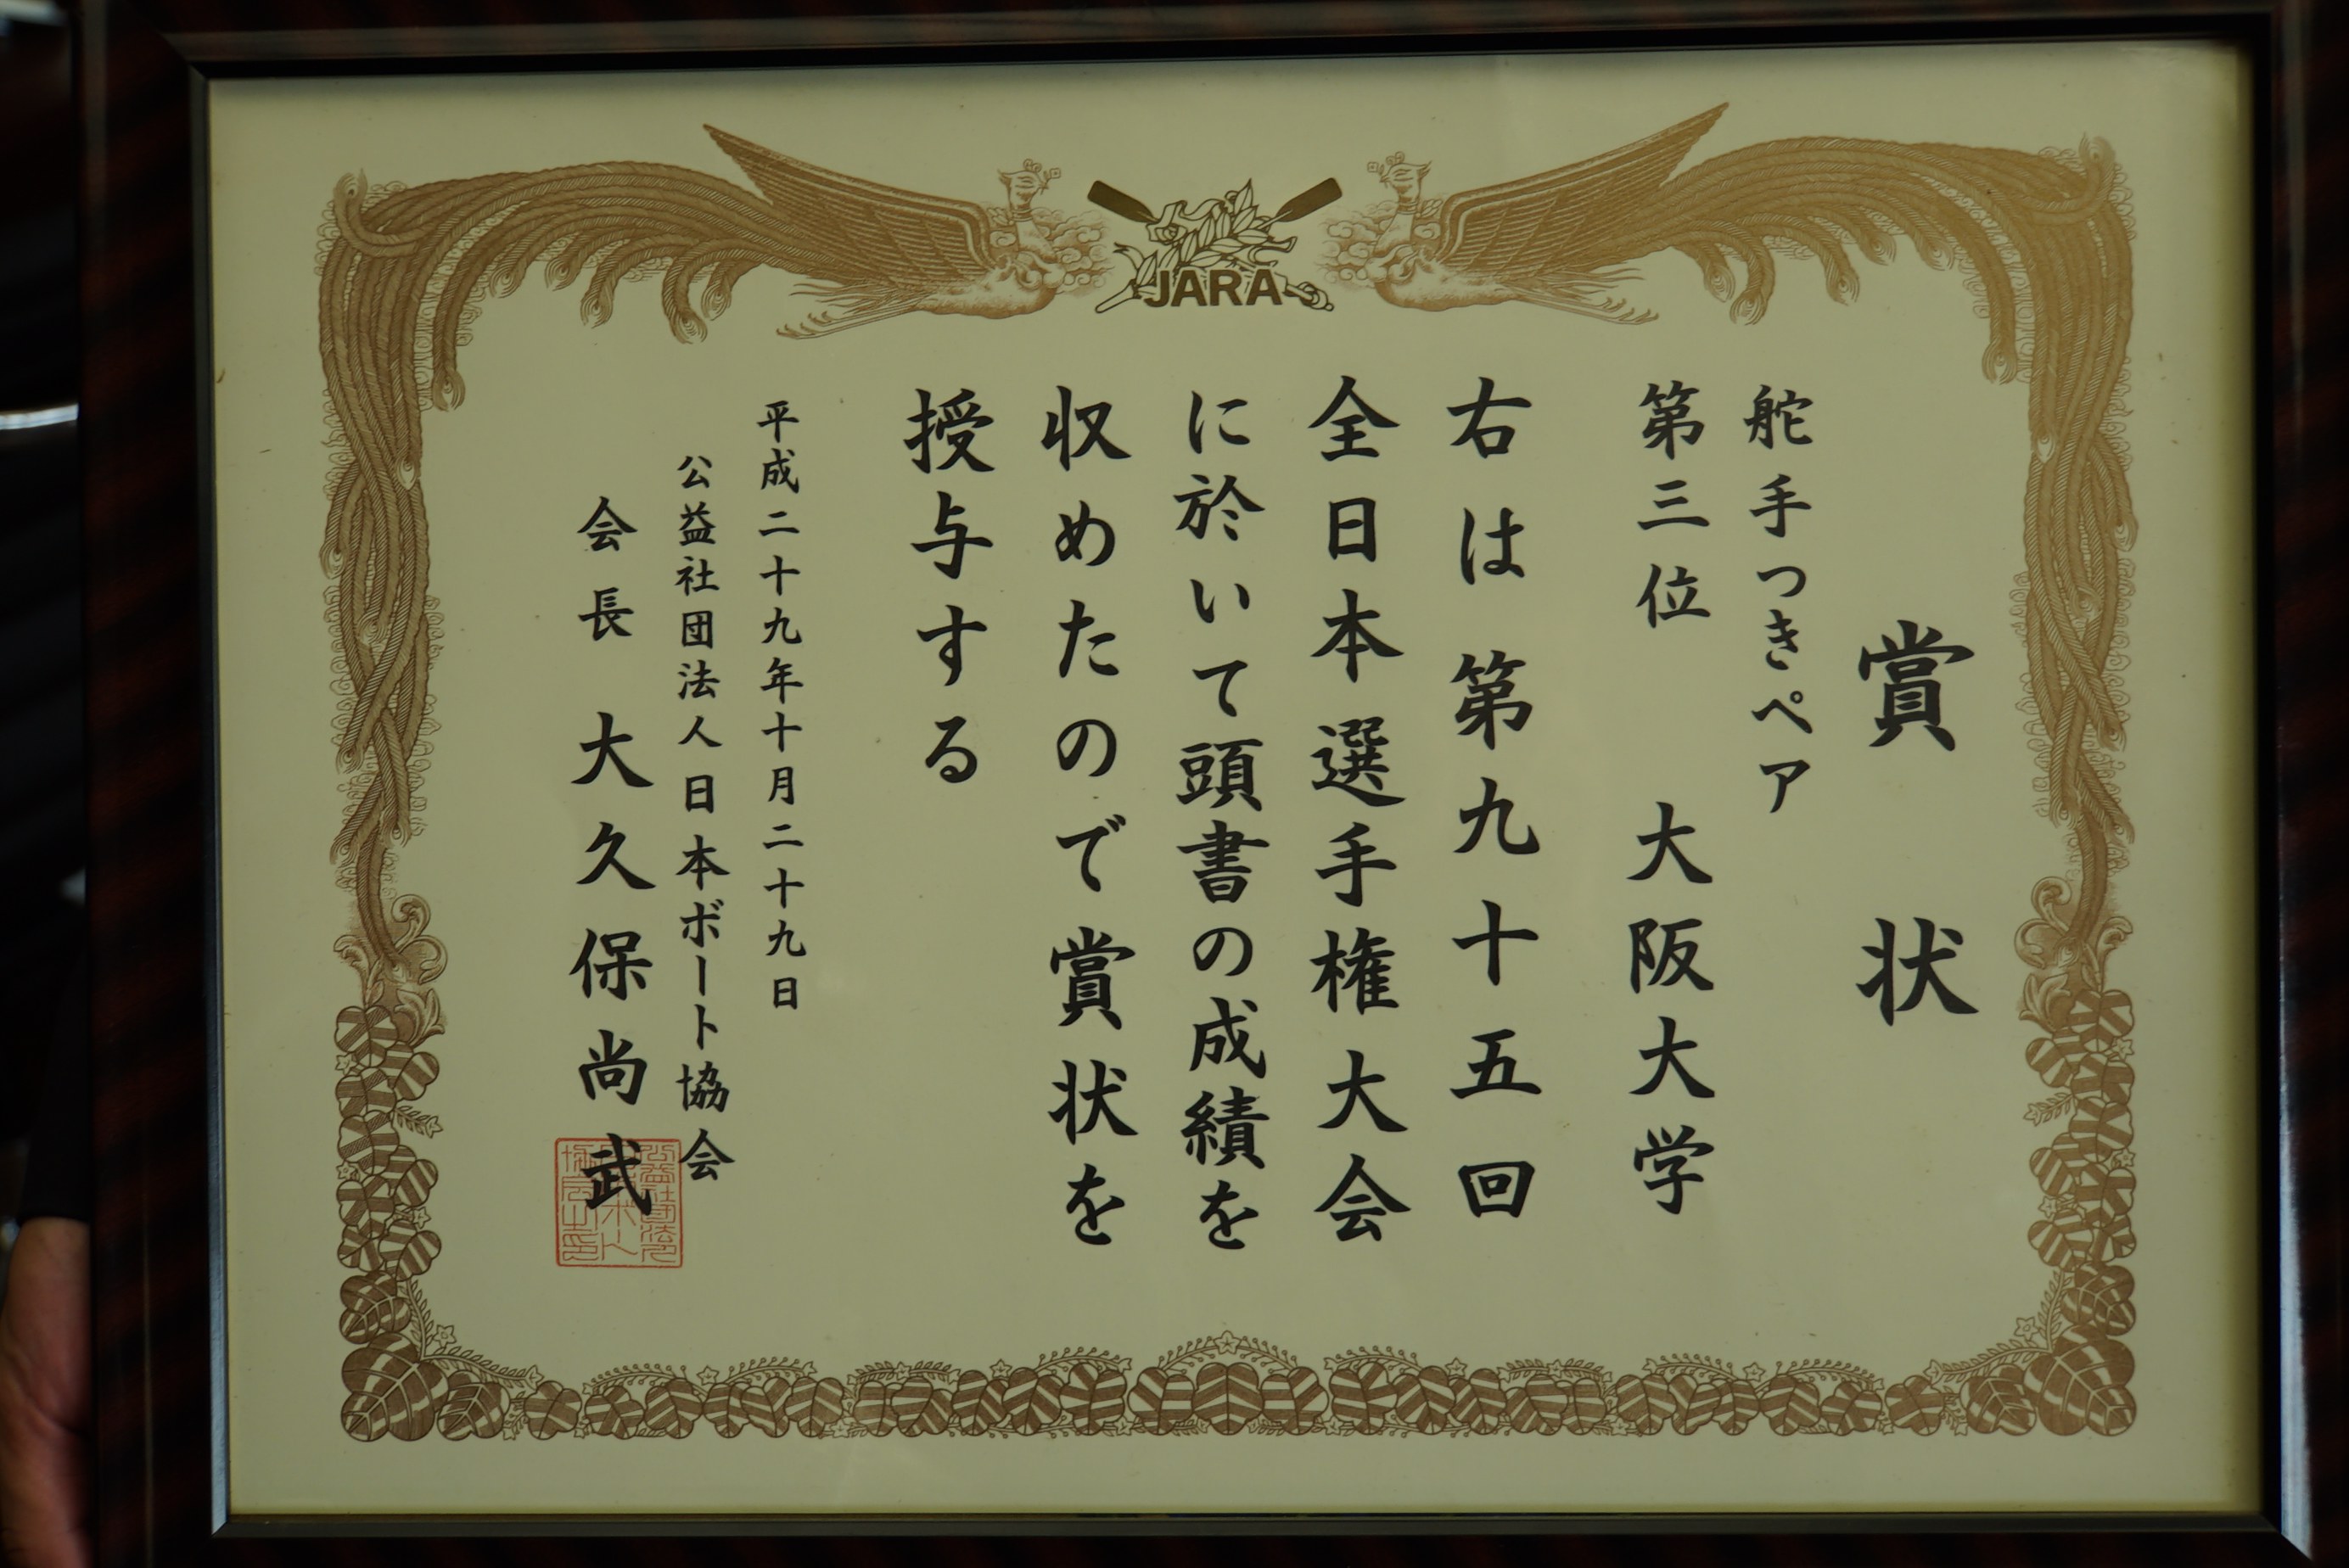 JARA
賞状
舵手つきペア
第三位 大阪大学
右は 第九十五回
全日本選手権大会
に於いて頭書の成績を
収めたので賞状を
授与する
平成二十九年十月二十九日
公益社団法人日本ボート協会
会長 大久保尚武